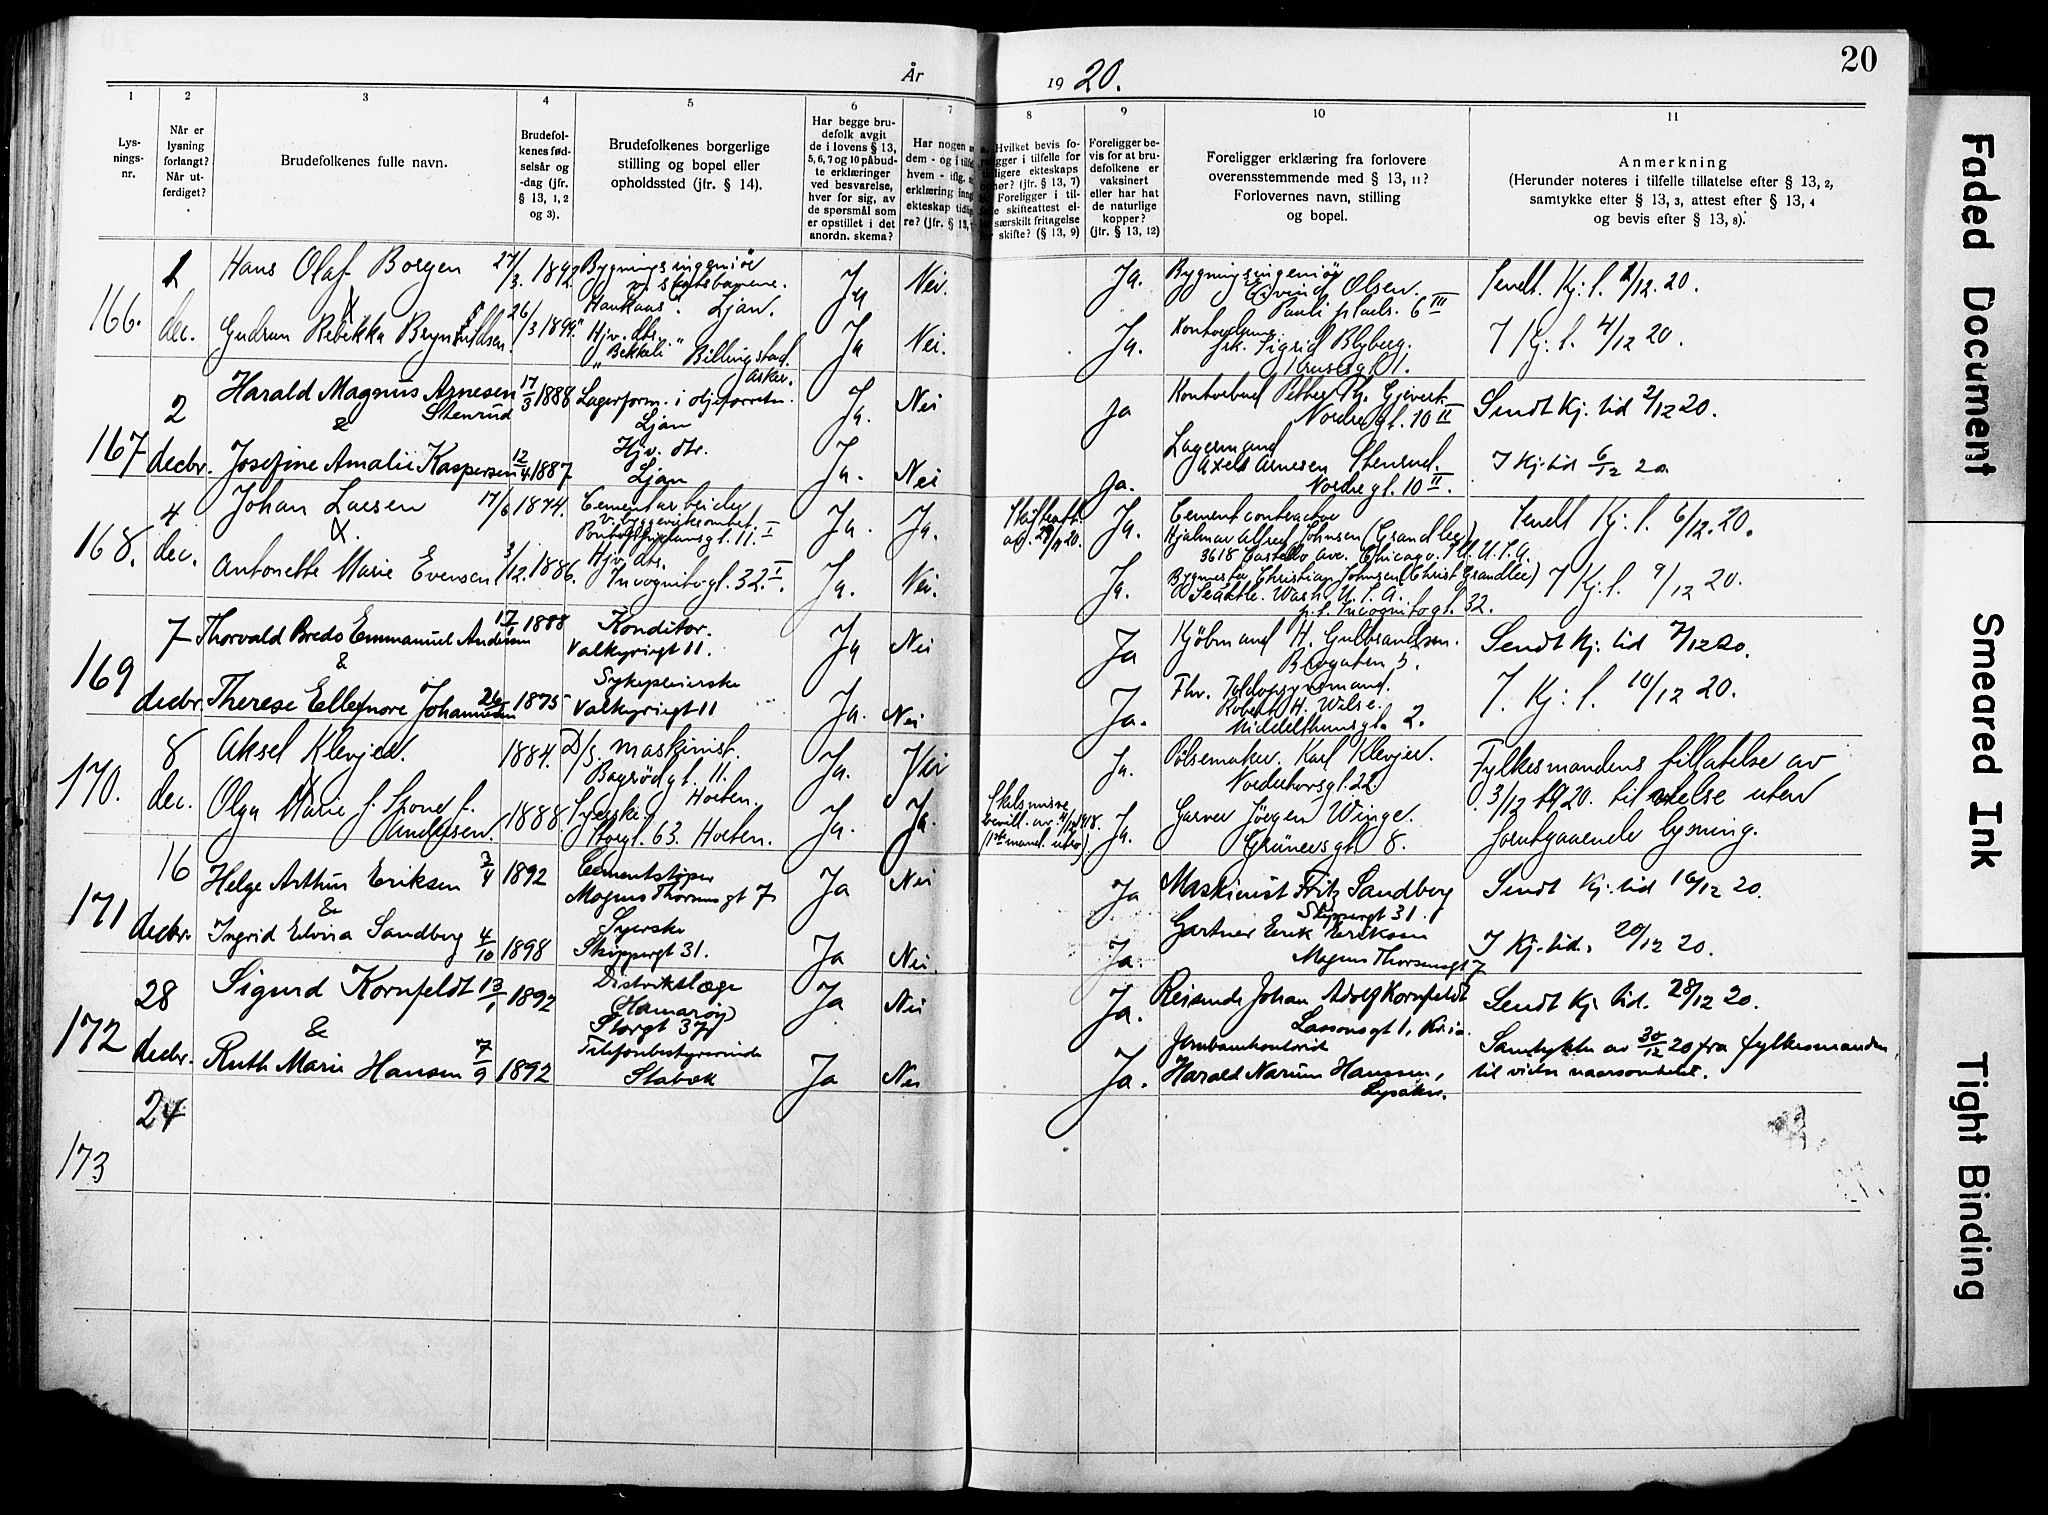 År 1920.
20
1
2
3
4
5
6
7
8
9
10
11
Lys-
nings-
nr.
Når er
lysning
forlangt?
Når ut-
ferdiget?
Brudefolkenes fulle navn.
Brudefol-
kenes fød-
selsår og
-dag (jfr.
§ 13, 1, 2
og 3).
Brudefolkenes borgerlige
stilling og bopel eller
opholdssted (jfr. § 14).
Har begge bru-
defolk avgit
de i lovens § 13,
5, 6, 7 og 10 påbud-
te erklæringer
ved besvarelse,
hver for sig, av
de spørsmål som
er opstillet i det
anordn. skema?
Har nogen
dem - og i
hvem - iflg.
erklæring
ekteskap
re? (jfr. § 13,
Hvilket bevis fo-
religger i tilfelle for
tidligere ekteskaps
ophør? (jfr. § 13, 7)
Foreligger i til-
felle skifteattest el-
særskilt fritagelse
for skifte? (§ 13, 9)
Foreligger be-
vis for at bru-
defolkene er
vaksinert
eller har hat
de naturlige
kopper?
(jfr. § 13, 12)
Foreligger erklæring fra forlovere
overensstemmende med § 13, 11?
Forlovernes navn, stilling
og bopel.
Anmerkning
(Herunder noteres i tilfelle tillatelse efter § 13, 2,
samtykke efter § 13, 3, attest efter § 13, 4
og bevis efter § 13, 8).
166.
1
dec.
Hans Olaf Borgen
27/3. 1892
Bygningsingeniör
v. statsbanene.
Haukaas. Ljan.
Ja
Nei.
Ja.
Bygningsingeniör
Eivind Olsen.
Pauli pl. 6 III
Sendt. Kj: l. 1/12. 20.
Gudrun Rebekka
26/3 1899
Hjv. dtr.
"Bekkeli" Billingstad
Asker.
Ja
Nei.
Ja.
frk. Sigrid Blyberg.
Krusesgt. 11.
I Kj: l. 4/12 20.
167
2
decbr.
Harald Magnus Arnesen
Stenrud
17/3 1888
Lagerform. i oljeforretn.
Ljan
Ja.
Nei
Ja
Kontorbud Petter Th. Gjevert
Nordregt. 10 II
Sendt Kj. tid 2/12 20.
&
Josefine Amalie Kaspersen
12/4 1887
Hjv. dtr.
Ljan
Ja.
Nei
Ja.
Lagermand
Axel Arnesen Stenrud.
Nordregt. 10 II.
I Kj. tid 6/12 20
168.
4
dec.
Johan Larsen
17/6 1874.
Cementarbeider
v. byggevirksomhet.
11. I
Ja.
Ja.
Skifteatt.
av. 29/11 20.
Ja.
Cementcontractor
Hjalmar Alfred Johnsen (Grandlee)
3618 Castello Ave. Chicago. Ill. U.S.A.
Sendt Kj: l. 6/12. 20.
Antonette Marie Evensen
3/12. 1886.
Hjv. dtr.
Incognitogt. 32. I.
Ja.
Nei.
Ja.
Bygmester Christian Johnsen (Christ Grandlee)
Seattle. Wash. U.S.A.
p.t. Incognitogt. 32.
I Kj: l. 9/12 20.
169
7
decbr.
Thorvald Bredo Emmanuel Andersen
17/1 1888
Konditor.
Valkyriegt 11.
Ja
Nei
Ja
Kjöbmand H. Gulbrandsen.
Brogaten 5.
Sendt Kj. tid 7/12 20.
&
Therese Ellefnore Johannesen
26/ 1875
Sykepleierske
Valkyriegt 11
Ja.
Nei
Ja.
Fhv. Toldopsynsmand.
Robert H. Wilse.
Middelthunsgt. 2.
I. Kj: l. 10/12 20.
170.
8
dec.
Aksel Klevjer.
1884.
D/S. maskinist.
Bagrödgt. 11.
Horten.
Ja.
Nei
Ja.
Pölsemaker. Karl Klevjer.
Nordehovsgt. 22.
Fylkesmandens tillatelse av
3/12 1920. til vielse uten
forutgaaende lysning.
Olga Marie f.
Andersen.
1888
Syerske.
Storgt. 63. Horten.
Ja.
Ja.
Statsminis
bevill. av 4/12 1918.
Ja.
Garver Jörgen Winge.
Grünersgt. 8.
171
16
decbr.
Helge Arthur Eriksen
3/4 1892
Cementstöper
Magnus Thorsensgt 7
Ja
Nei
Ja
Maskinist Fritz Sandberg
Skippergt 31.
Sendt Kj. tid 16/12 20.
&
Ingrid Elvira Sandberg
4/10 1898
Syerske
Skippergt 31.
Ja
Nei.
Ja.
Gartner Erik Eriksen
Magnus Thorsensgt 7
I Kj. tid. 20/12 20.
172
28
decbr.
Sigurd Kornfeldt
13/1 1892
Distriktslæge
(Hamaröy)
Storgt 37
Ja
Nei
Ja.
Reisende Johan Adolf Kornfeldt
Lassonsgt 1, Kr.ia.
Sendt Kj. tid. 28/12 20.
&
Ruth Marie Hansen
7/9 1892
Telefonbestyrerinde
Stabæk
Ja
Nei
Ja.
Jernbanekontorist
Harald Narum Hanssen,
Lysaker.
Samtykke av 30/12 20 fra fylkesmanden
173
24
Faded Document
Smeared Ink
Tight Binding